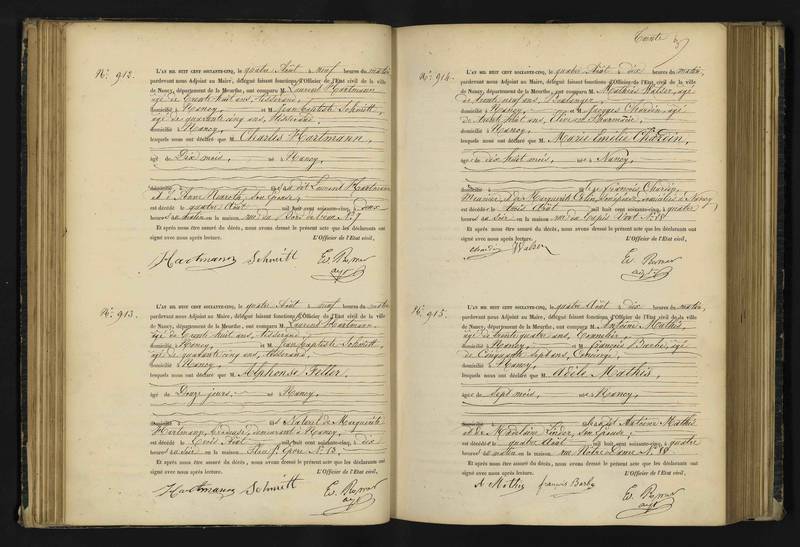 N° 912.
L'AN MIL HUIT CENT SOIXANTE-CINQ, le quatre Août à neuf heures du matin,
pardevant nous Adjoint au Maire, délégué faisant fonctions d'Officier de l'Etat civil de la ville
de Nancy, département de la Meurthe, ont comparu M. Laurent Hartmann
âgé de trente huit ans, Tisserand,
domicilié à Nancy, et M. Jean Baptiste Schmitt,
âgé de quarante cinq ans, Tisserand,
domicilié à Nancy,
lesquels nous ont déclaré que M. Charles Hartmann,
âgé de Dix mois, né à Nancy,
domicilié à fils du dit Laurent Hartmann
et d'Anne son Epouse,
est décédé le quatre Août mil huit cent soixante-cinq, à deux
heures du matin en la maison rue du N° 7
Et après nous être assuré du décès, nous avons dressé le présent acte que les déclarants ont
signé avec nous après lecture. L'Officier de l'Etat civil,
Hartmann Schmitt
N° 913.
L'AN MIL HUIT CENT SOIXANTE-CINQ, le quatre Août à neuf heures du matin
pardevant nous Adjoint au Maire, délégué faisant fonctions d'Officier de l'Etat civil de la ville
de Nancy, département de la Meurthe, ont comparu M. Laurent Hartmann
âgé de trente huit ans, Tisserand,
domicilié à Nancy, et M. Jean Baptiste Schmitt,
âgé de quarante cinq ans, Tisserand,
domicilié à Nancy,
lesquels nous ont déclaré que M. Alphonse Feller,
âgé de Douze jours, né à Nancy,
domicilié à fils Naturel de Marguerite
Hartmann, demeurant à Nancy,
est décédé le trois Août mil huit cent soixante-cinq, à dix
heures du soir en la maison Place St Epvre N° 13.
Et après nous être assuré du décès, nous avons dressé le présent acte que les déclarants ont
signé avec nous après lecture. L'Officier de l'Etat civil,
Hartmann Schmitt
N° 914.
L'AN MIL HUIT CENT SOIXANTE-CINQ, le quatre Août à dix heures du matin,
pardevant nous Adjoint au Maire, délégué faisant fonctions d'Officier de l'Etat civil de la ville
de Nancy, département de la Meurthe, ont comparu M. Mathias Walser, âgé
de trente neuf ans, Boulanger,
domicilié à Nancy, et M. Jacques Chardin, âgé
de huit ans, Elève en Pharmacie,
domicilié à Nancy,
lesquels nous ont déclaré que M. Marie Emélie Chardin,
âgée de dix huit mois, née à Nancy,
domicilié à fille de François Chardin,
et de Marguerite domiciliés à Nancy
est décédée le trois Août mil huit cent soixante-cinq, à quatre
heures du soir en la maison rue du Tapis Vert N° 18
Et après nous être assuré du décès, nous avons dressé le présent acte que les déclarants ont
signé avec nous après lecture. L'Officier de l'Etat civil,
Chardin Walser
N° 915.
L'AN MIL HUIT CENT SOIXANTE-CINQ, le quatre Août à dix heures du matin,
pardevant nous Adjoint au Maire, délégué faisant fonctions d'Officier de l'Etat civil de la ville
de Nancy, département de la Meurthe, ont comparu M. Antoine Mathis,
âgé de trente quatre ans, Tonnelier,
domicilié à Nancy, et M. François Barbe, âgé
de Cinquante sept ans, Concierge,
domicilié à Nancy,
lesquels nous ont déclaré que M. Adèle Mathis,
âgée de Sept mois, née à Nancy,
domicilié à fille du dit Antoine Mathis
et de Madelaine son Epouse,
est décédée le quatre Août mil huit cent soixante-cinq, à quatre
heures du matin en la maison rue Notre Dame N° 88
Et après nous être assuré du décès, nous avons dressé le présent acte que les déclarants ont
signé avec nous après lecture. L'Officier de l'Etat civil,
A Mathis françois Barbe